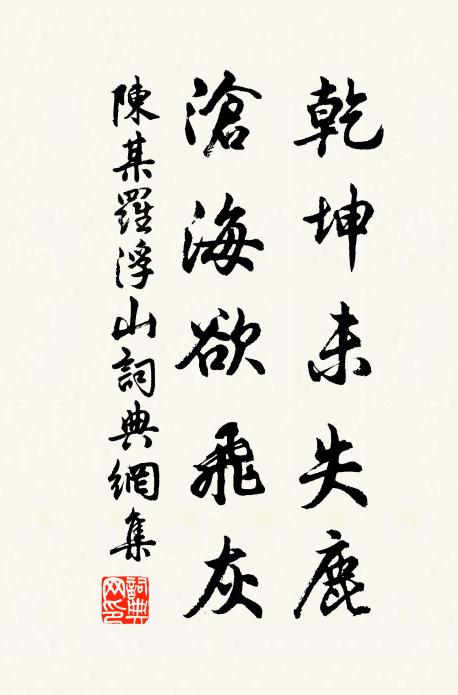 乾坤未失鹿
滄海欲飛灰
陳某羅浮山詞典網集
詞典網印